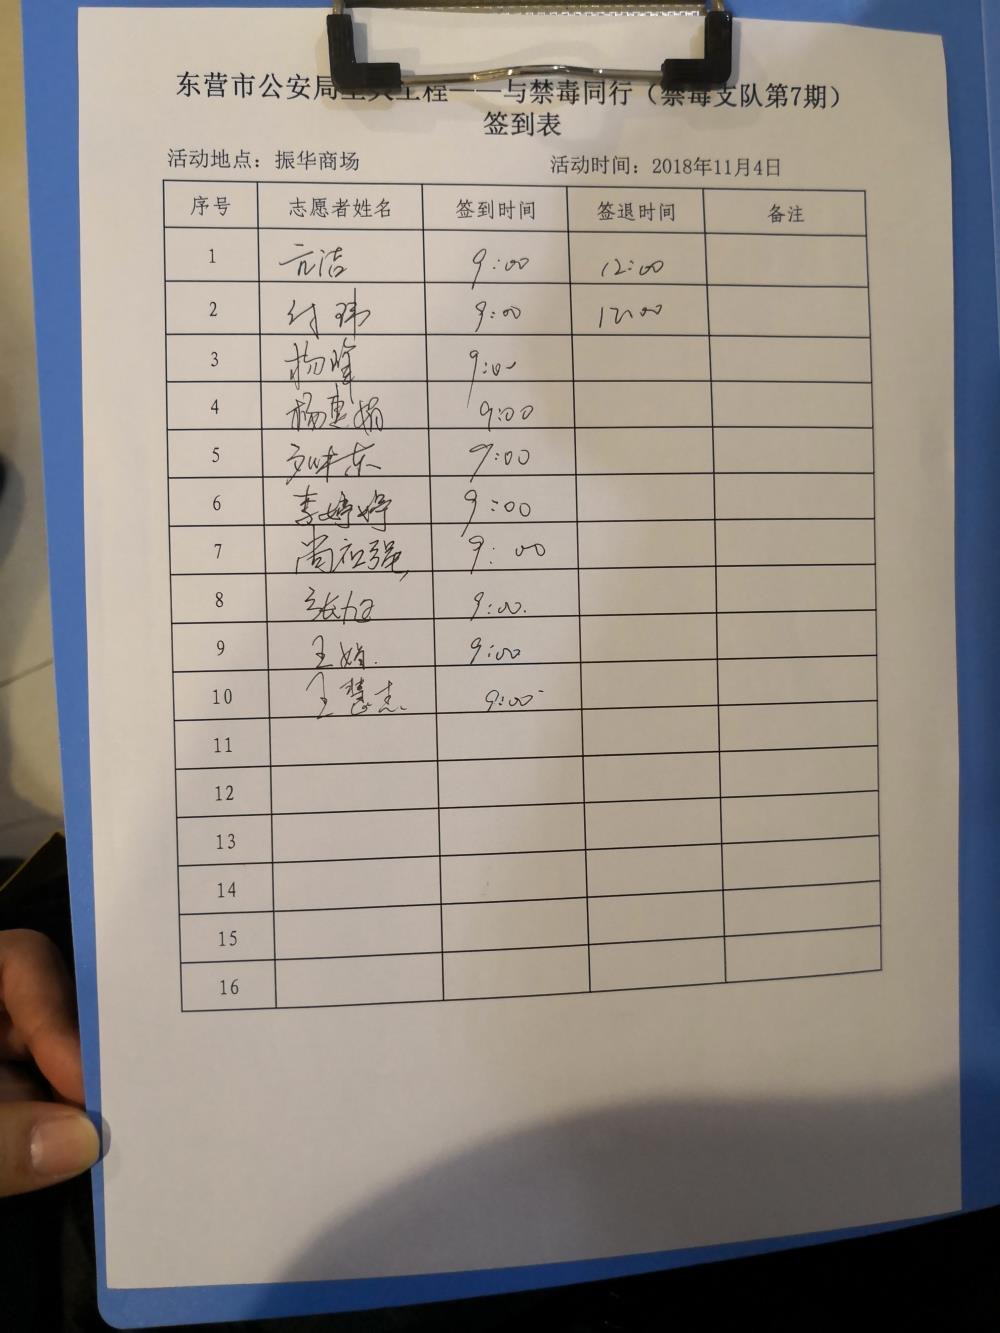 东营市公安局 工程——与禁毒同行（禁毒支队第7期）
签到表
活动地点：振华商场 活动时间：2018年11月4日
序号 志愿者姓名 签到时间 签退时间 备注
1 亓洁 9:00 12:00
2 付玮 9:00 12:00
3 杨峰 9:00
4 杨惠娟 9:00
5 9:00
6 李婷婷 9:00
7 尚祖强 9:00
8 9:00
9 王娟 9:00
10 王慧志 9:00
11
12
13
14
15
16